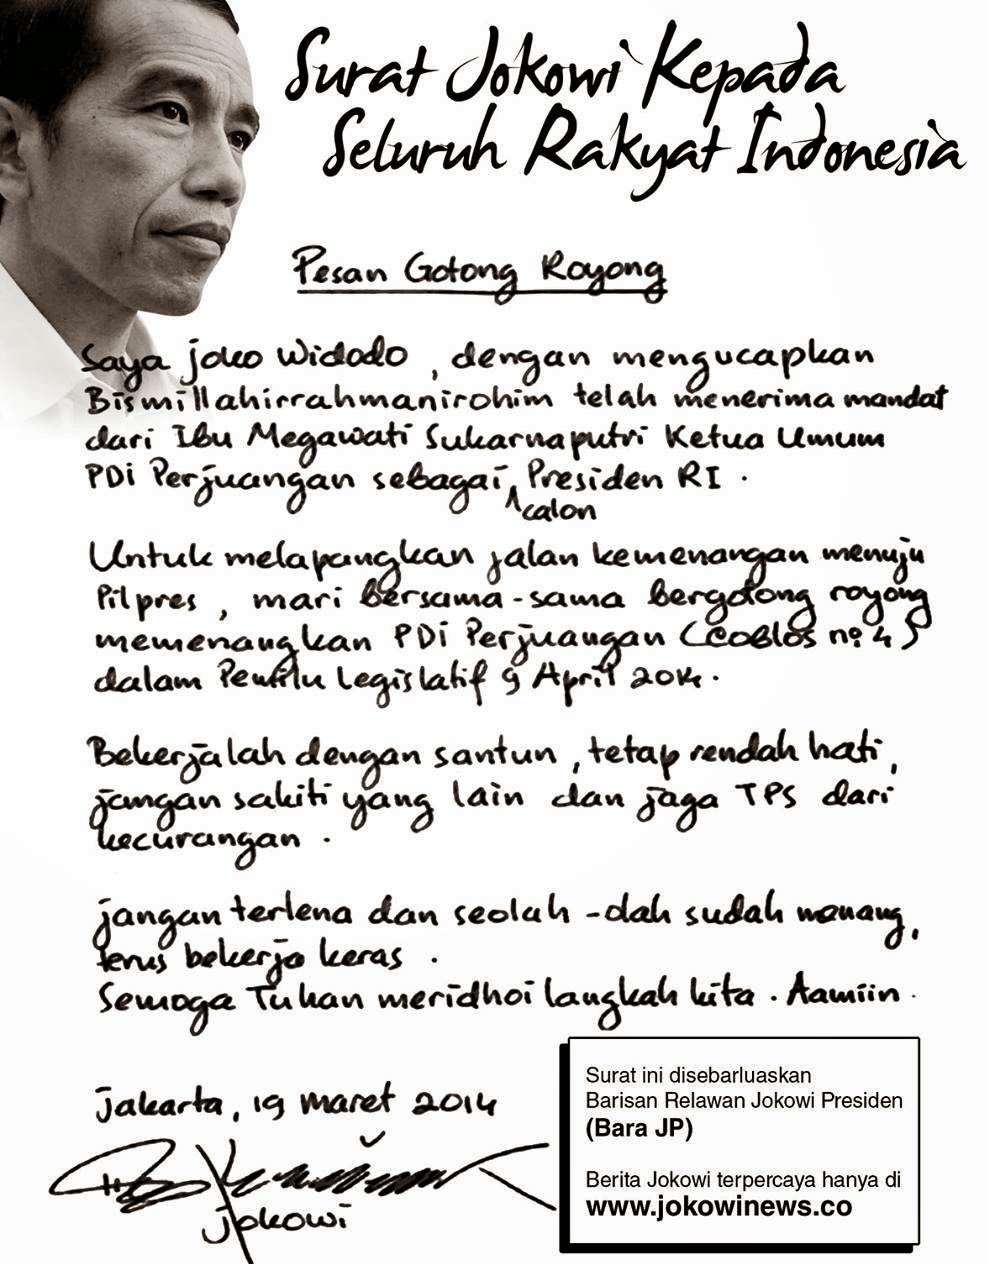 Surat Jokowi Kepada
Seluruh Rakyat Indonesia
Pesan Gotong Royong
Saya joko Widodo, dengan mengucapkan
Bismillahirrahmanirohim telah menerima mandat
dari Ibu Megawati Sukarnaputri Ketua Umum
PDi Perjuangan sebagai Presiden RI.
calon
Untuk melapangkan jalan kemenangan menuju
Pilpres, mari bersama-sama bergotong royong
memenangkan PDi Perjuangan (Coblos no 4)
dalam Pemilu Legislatif 9 April 2014.
Bekerjalah dengan santun, tetap rendah hati,
jangan sakiti yang lain dan jaga TPS dari
kecurangan.
jangan terlena dan seolah-olah sudah menang,
terus bekerja keras.
Semoga Tuhan meridhoi langkah kita. Aamiin.
jakarta, 19 maret 2014
jokowi
Surat ini disebarluaskan
Barisan Relawan Jokowi Presiden
(Bara JP)
Berita Jokowi terpercaya hanya di
www.jokowinews.co